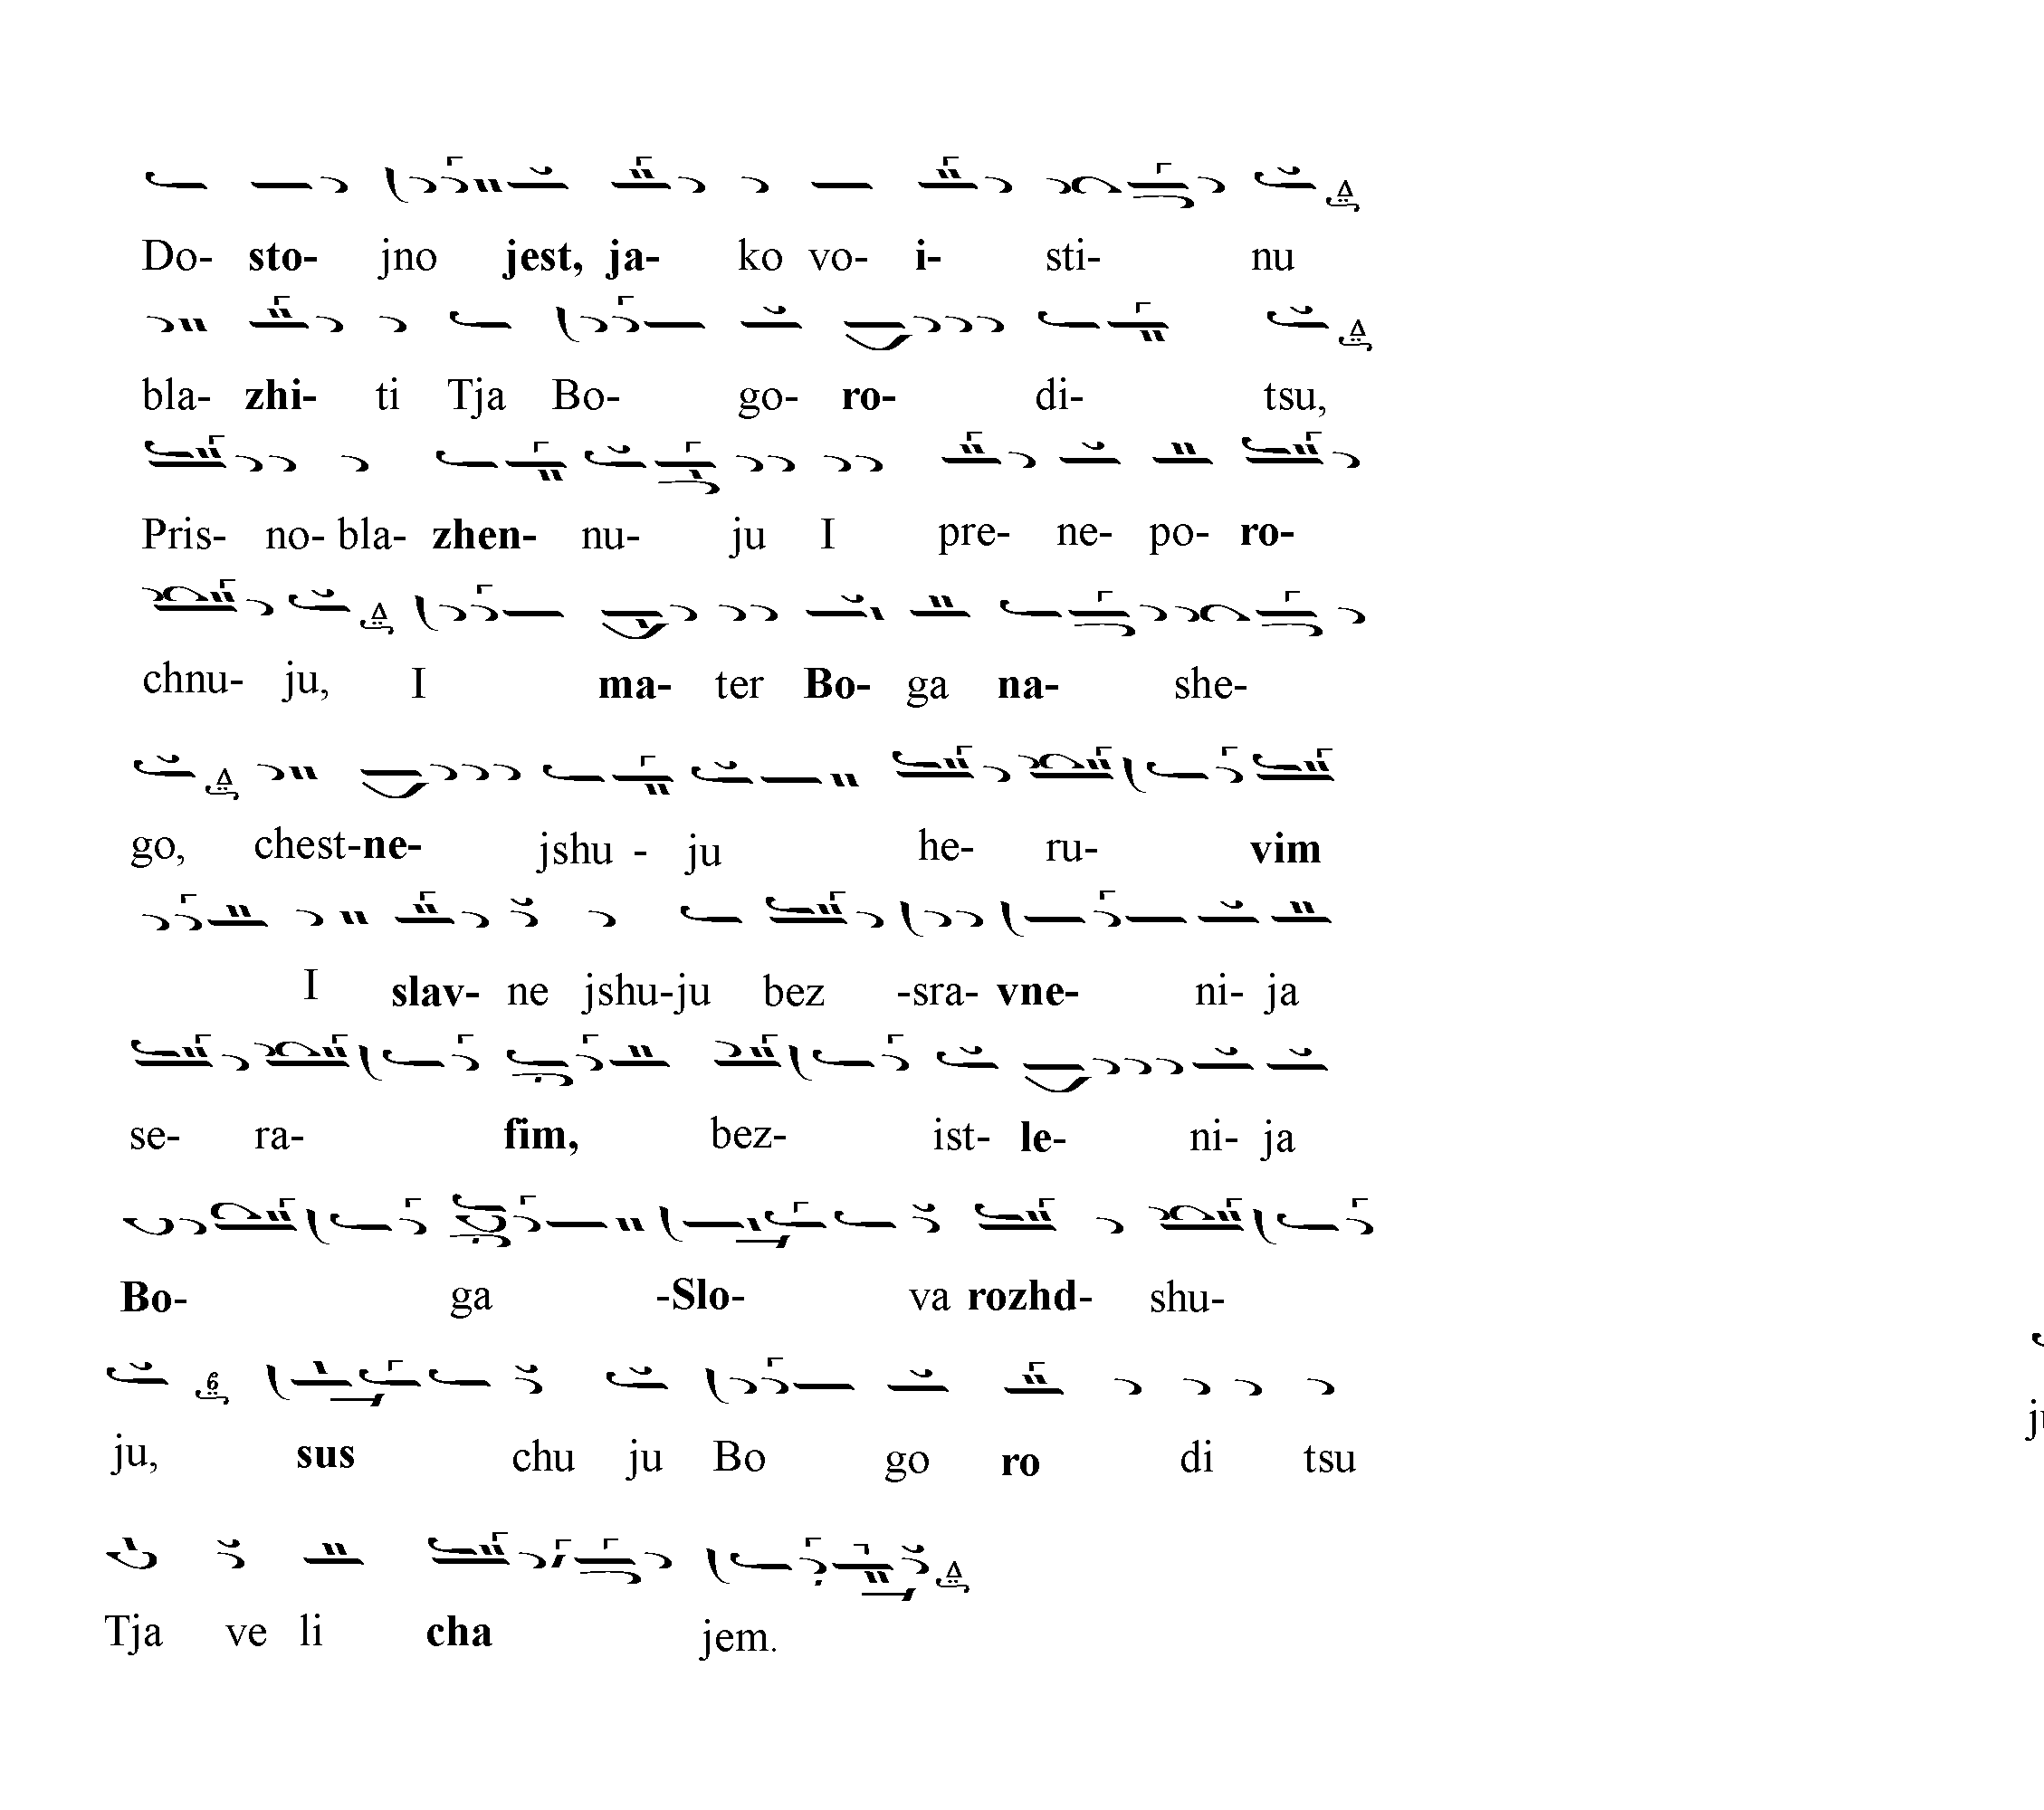 Do- sto- jno jest, ja- ko vo- i- sti- nu
bla- zhi- ti Tja Bo- go- ro- di- tsu,
Pris- no- bla- zhen- nu- ju I pre- ne- po- ro-
chnu- ju, I ma- ter Bo- ga na- she-
go, chest-ne- jshu - ju he- ru- vim
I slav- ne jshu-ju bez -sra- vne- ni- ja
se- ra- fim, bez- ist- le- ni- ja
Bo- ga -Slo- va rozhd- shu-
ju, sus chu ju Bo go ro di tsu
Tja ve li cha jem.